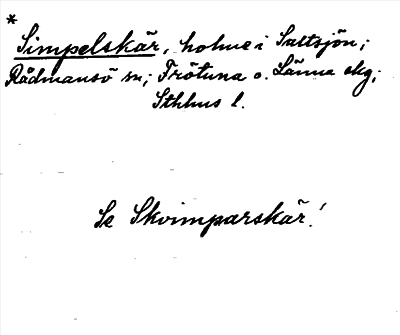 *
Simpelskär, holme i Saltsjön;
Rådmansö sn; Frötuna o. Länna skg;
Sthlms l.
Se Skvimparskär!